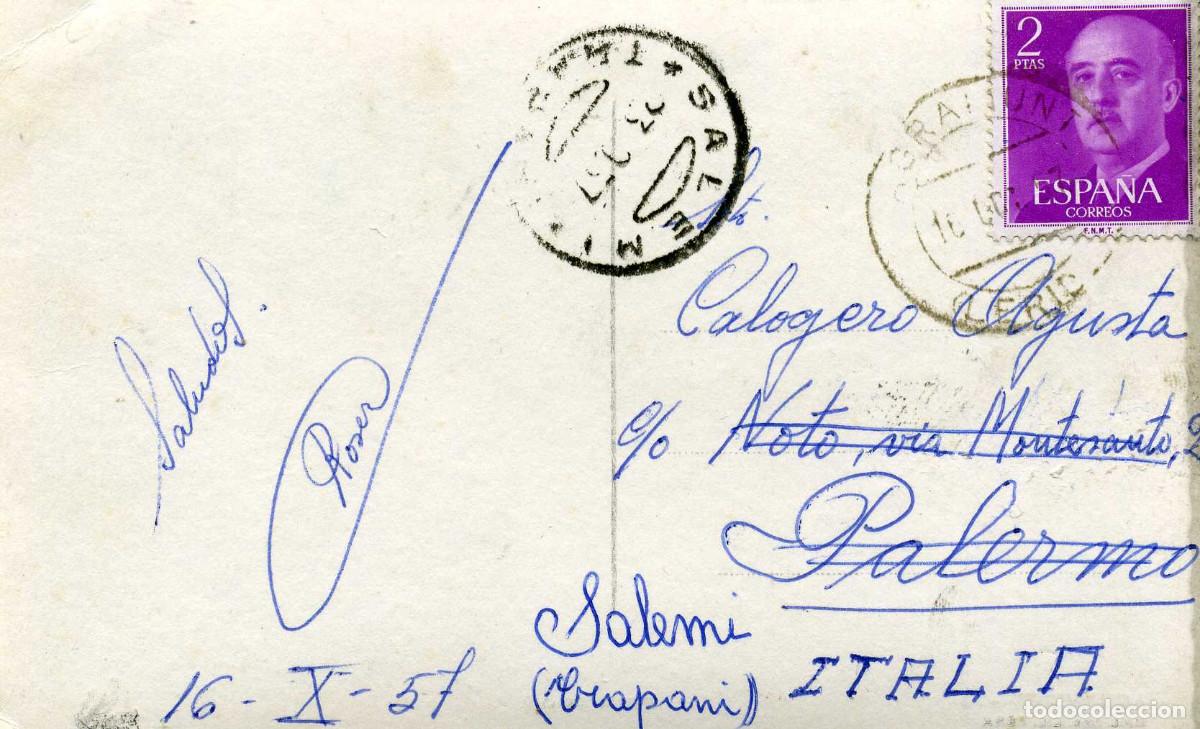 2
PTAS
ESPAÑA
CORREOS
F.N.M.T.
SALEMI
Saludos.
Roser
16-X-57
Calogero Agusta
c/o Noto, via Montesanto, 2
Palermo
Salemi
(Trapani)
ITALIA
todocoleccion